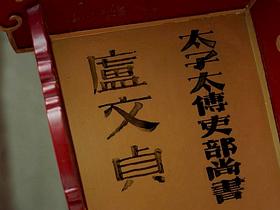 太子太傅吏部尚書
盧文貞